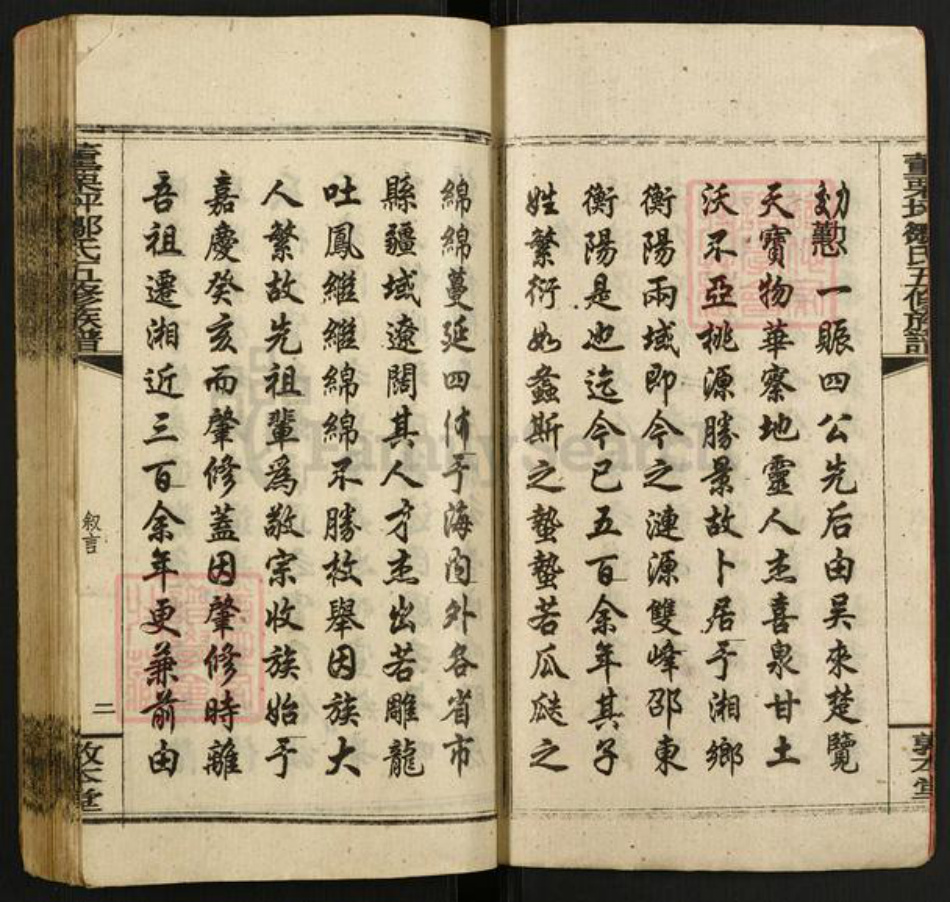 勳懃一賑四公先后由吴來楚覽
天寶物華察地靈人杰喜泉甘土
沃不亞桃源勝景故卜居于湘鄉
衡陽兩域即今之漣源雙峰邵東
衡陽是也迄今已五百余年其子
姓繁衍如螽斯之蟄蟄若瓜瓞之
綿綿蔓延四佈于海內外各省市
縣疆域遼闊其人才杰出若雕龍
吐鳳繼繼綿綿不勝枚舉因族大
人繁故先祖輩爲敬宗收族始于
嘉慶癸亥而肇修蓋因肇修時離
吾祖遷湘近三百余年更兼前由
鄒氏五修族譜
叙言
二
FamilySearch